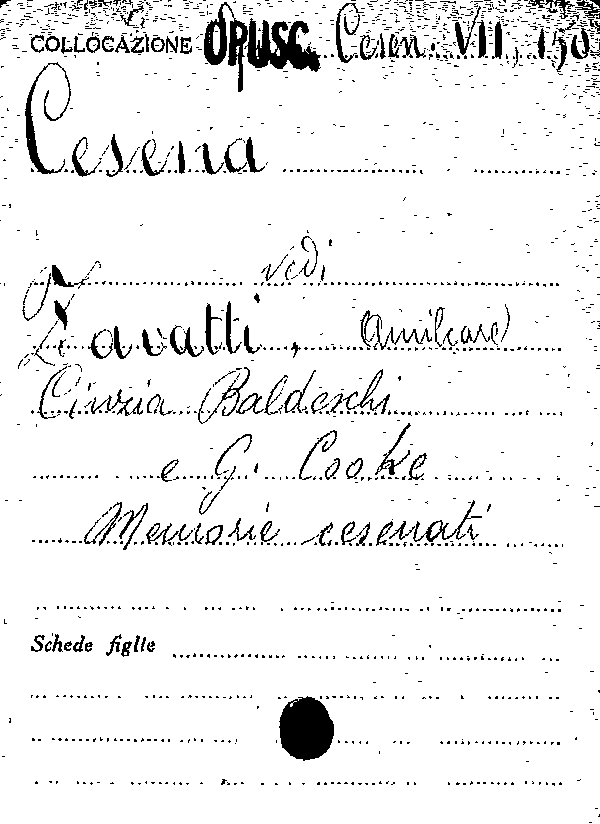 COLLOCAZIONE OPUSC. Cesen. VII, 150
Cesena
vedi
Zavatti, Amilcare
Cinzia Baldeschi
e G. Cooke
Memorie cesenati
Schede figlie